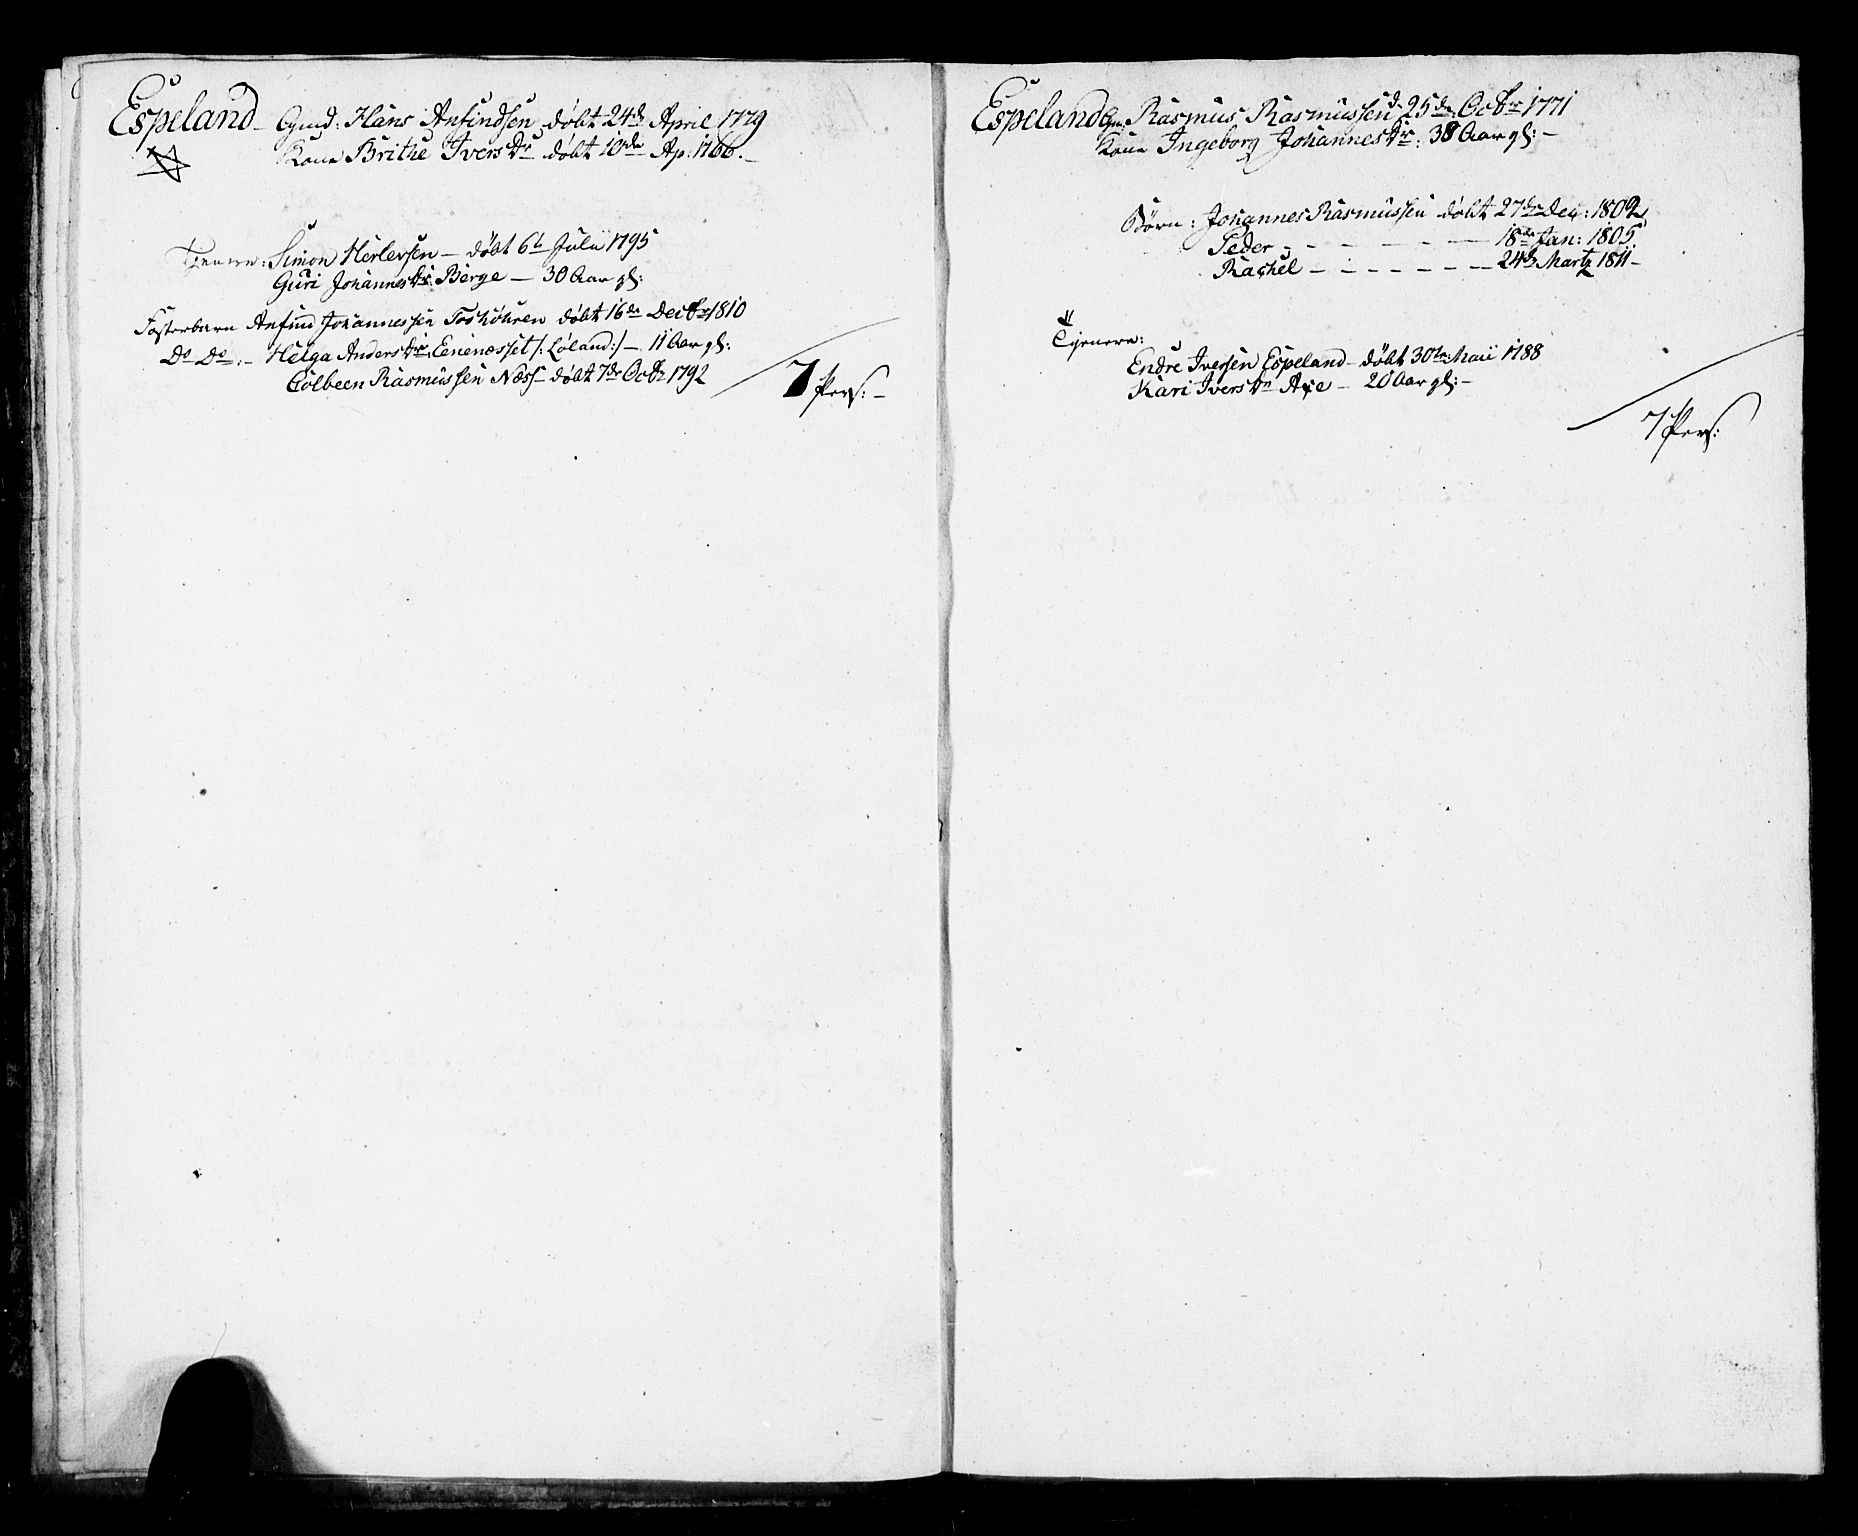 Espeland Gmd: Hans Anfindsen døbt 24de April 1779
Kone Brithe Ivers dr døbt 10de Ap: 1766.
Tjenere: Simon Herlevsen – døbt 6te Julii 1795
Guri Johannes dr Berge – 30 Aar gl:
Fosterbarn Anfind Johannessen døbt 16de Decbr 1810
Do Do – Helga Anders dr Eenenæsset /: Løland :/ – 11 Aar gl:
Colbeen Rasmussen Næss – døbt 7de Octbr 1792
7 Pers: –
Espeland Gm. Rasmus Rasmussen d. 25de Octbr 1771
Kone Ingeborg Johannes dr: 38 Aar gl: –
Børn: Johannes Rasmussen døbt 27de Dec: 1802
Peder – – – – – – 18de Jan: 1805
Rachel – – – – – – 24de Martz 1811 –
Tjenere:
Endre Iversen Espeland – døbt 30te Maii 1788
Kari Ivers dr Axe – 20 Aar gl: –
7 Pers: